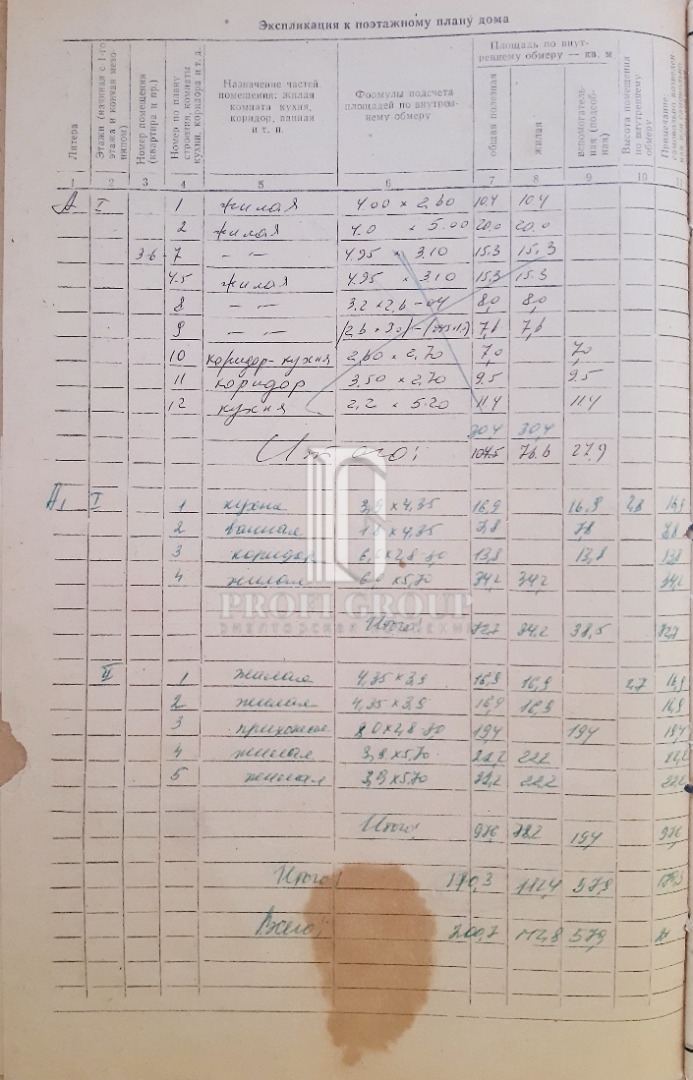 Экспликация к поэтажному плану дома
Литера
Этажи (начиная с 1-го этажа и кончая мезонином)
Номер помещения (квартира и пр.)
Номер по плану строения, комнаты кухни, коридора и т. д.
Назначение частей помещения: жилая комната кухня, коридор, ванная и т. п.
Формулы подсчета площадей по внутреннему обмеру
Площадь по внутреннему обмеру — кв. м
общая полезная
жилая
вспомогательная (подсобная)
Высота помещения по внутреннему обмеру
Примечание
1 2 3 4 5 6 7 8 9 10 11
А I 1 жилая 4.00 × 2.60 10.4 10.4
2 жилая 4.0 × 5.00 20.0 20.0
3-6-7 -„- 4.95 × 3.10 15.3 15.3
4.5 жилая 4.95 × 3.10 15.3 15.3
8 -„- 3.2 × 2.6 - 0.4 8,0 8,0
9 -„- 7,6 7,6
10 коридор-кухня 2,60 × 2,70 7,0 7,0
11 коридор 3.50 × 2.70 9.5 9.5
12 кухня 2,2 × 5.20 11.4 11.4
30,4 30,4
Итого: 104.5 76.6 27,9
А1 I 1 кухня 3,9 × 4,35 16,9 16,9 2,8 16,9
2 ванная 1.8 × 4.35 7,8 7,8 7,8
3 коридор 13,8 13,8 13,8
4 жилая 6,0 × 5,70 34,2 34,2 34,2
PROFI GROUP
Итого: 72,7 34,2 38,5 72,7
II 1 жилая 4,35 × 3,9 16,9 16,9 2,7 16,9
2 жилая 4,35 × 3,9 16,9 16,9 16,9
3 прихожая 19,4 19,4 19,4
4 жилая 3,9 × 5,70 22,2 22,2 22,2
5 жилая 3,9 × 5,70 22,2 22,2 22,2
Итого: 97,6 78,2 19,4 97,6
Итого: 170,3 112,4 57,9 170,3
Всего: 200,7 142,8 57,9